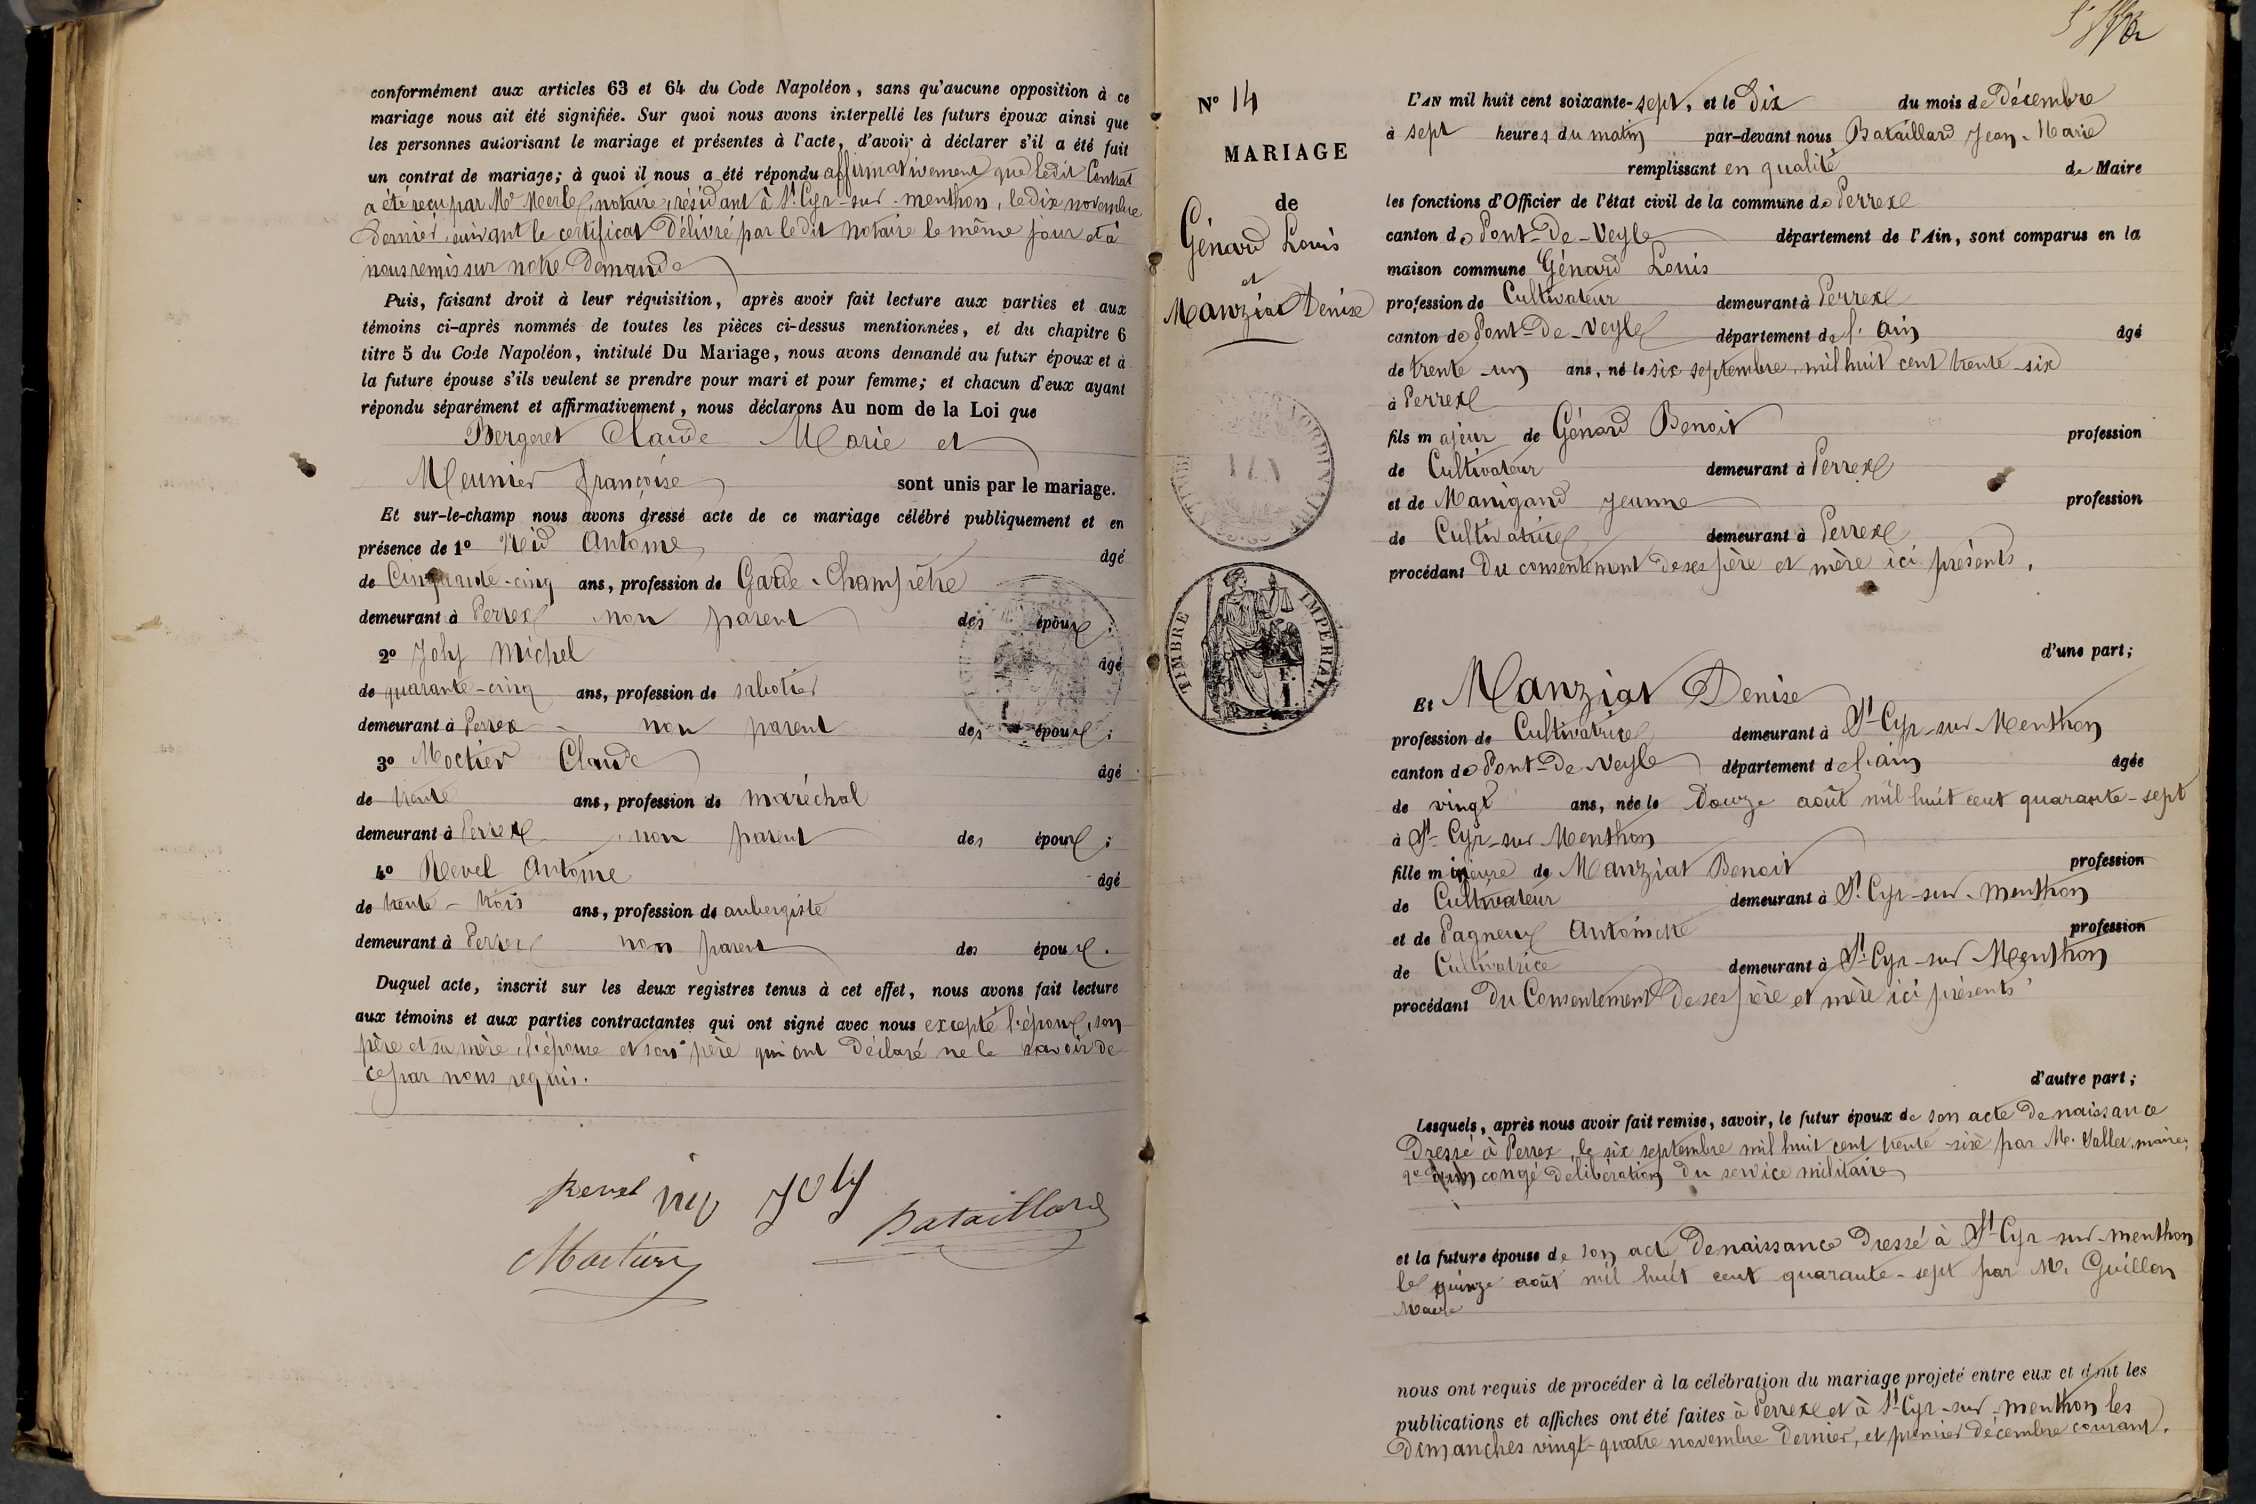 conformément aux articles 63 et 64 du Code Napoléon, sans qu'aucune opposition à ce
mariage nous ait été signifiée. Sur quoi nous avons interpellé les futurs époux ainsi que
les personnes autorisant le mariage et présentes à l'acte, d'avoir à déclarer s'il a été fait
un contrat de mariage; à quoi il nous a été répondu affirmativement que ledit Contrat
a été reçu par Me Merle, notaire, résidant à St Cyr-sur-menthon, le dix novembre
dernier, suivant le certificat délivré par ledit notaire le même jour et à
nous remis sur notre demande
Puis, faisant droit à leur réquisition, après avoir fait lecture aux parties et aux
témoins ci-après nommés de toutes les pièces ci-dessus mentionnées, et du chapitre 6
titre 5 du Code Napoléon, intitulé Du Mariage, nous avons demandé au futur époux et à
la future épouse s'ils veulent se prendre pour mari et pour femme; et chacun d'eux ayant
répondu séparément et affirmativement, nous déclarons Au nom de la Loi que
Bergeret Claude Marie et
Meunier françoise sont unis par le mariage.
Et sur-le-champ nous avons dressé acte de ce mariage célébré publiquement et en
présence de 1º Nid Antoine âgé
de Cinquante-cinq ans, profession de Garde-Champêtre
demeurant à Perrex non parent des époux;
2º Joly Michel âgé
de quarante-cinq ans, profession de sabotier
demeurant à Perrex non parent des époux;
3º Moctier Claude âgé
de trente ans, profession de maréchal
demeurant à Perrex non parent des époux;
4º Revel Antoine âgé
de trente-trois ans, profession de aubergiste
demeurant à Perrex non parent des époux.
Duquel acte, inscrit sur les deux registres tenus à cet effet, nous avons fait lecture
aux témoins et aux parties contractantes qui ont signé avec nous excepté l'époux, son
père et sa mère, l'épouse et son père qui ont déclaré ne le savoir de
ce par nous requis.
Revel Joly
Bataillard
Moctier
Nº 14
MARIAGE
de
Génard Louis
et
Manziat Denise
TIMBRE IMPÉRIAL
L'AN mil huit cent soixante-sept, et le Dix du mois de Décembre
à sept heures du matin par-devant nous Bataillard Jean-Marie
remplissant en qualité de Maire
les fonctions d'Officier de l'état civil de la commune de Perrex
canton de Pont-De-Veyle département de l'Ain, sont comparus en la
maison commune Génard Louis
profession de Cultivateur demeurant à Perrex
canton de Pont-De-Veyle département de l'ain âgé
de trente-un ans, né le six septembre, mil huit cent trente-six
à Perrex
fils majeur de Génard Benoit profession
de Cultivateur demeurant à Perrex
et de Manigand Jeanne profession
de Cultivatrice demeurant à Perrex
procédant du consentement de ses père et mère ici présents.
d'une part;
Et Manziat Denise
profession de Cultivatrice demeurant à St-Cyr-sur-Menthon
canton de Pont-De-Veyle département de l'ain âgée
de vingt ans, née le Douze août mil huit cent quarante-sept
à St-Cyr-sur-Menthon
fille mineure de Manziat Benoit profession
de Cultivateur demeurant à St-Cyr-sur-menthon
et de Pagneux Antoinette profession
de Cultivatrice demeurant à St-Cyr-sur-Menthon
procédant du Consentement de ses père et mère ici présents
d'autre part;
Lesquels, après nous avoir fait remise, savoir, le futur époux de son acte de naissance
Dressé à Perrex, le six septembre mil huit cent trente-six par M. Vallet, maire,
2º d'un congé de libération du service militaire
et la future épouse de son acte de naissance dressé à St-Cyr-sur-menthon
le quinze août mil huit cent quarante-sept par M. Guillon
Maire
nous ont requis de procéder à la célébration du mariage projeté entre eux et dont les
publications et affiches ont été faites à Perrex et à St-Cyr-sur-menthon les
Dimanches vingt-quatre novembre dernier, et premier décembre courant.